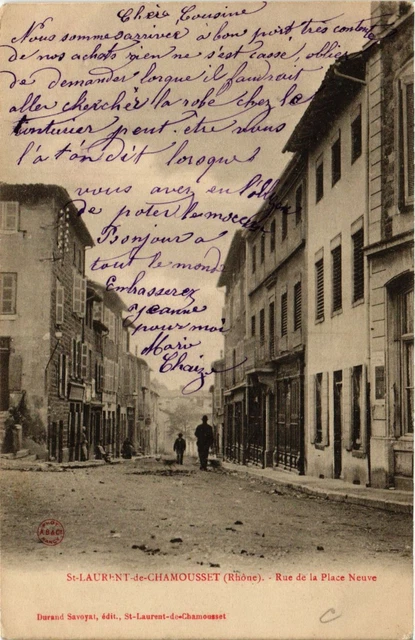 Chère Cousine
Nous sommes arriver a bon port tres content
de nos achats rien ne s'est casse, oblié
de demander lorsque il faudrait
aller chercher la robe chez le
tinturier peut-etre vous
l'a t'on dit lorsque
vous avez eu l'obl
de poter le
Bonjour a
tout le monde
Embrasserez
Jeanne
pour moi
Marie
Chaize
St-LAURENT-de-CHAMOUSSET (Rhône). - Rue de la Place Neuve
Durand Savoyat, édit., St-Laurent-de-Chamousset
C